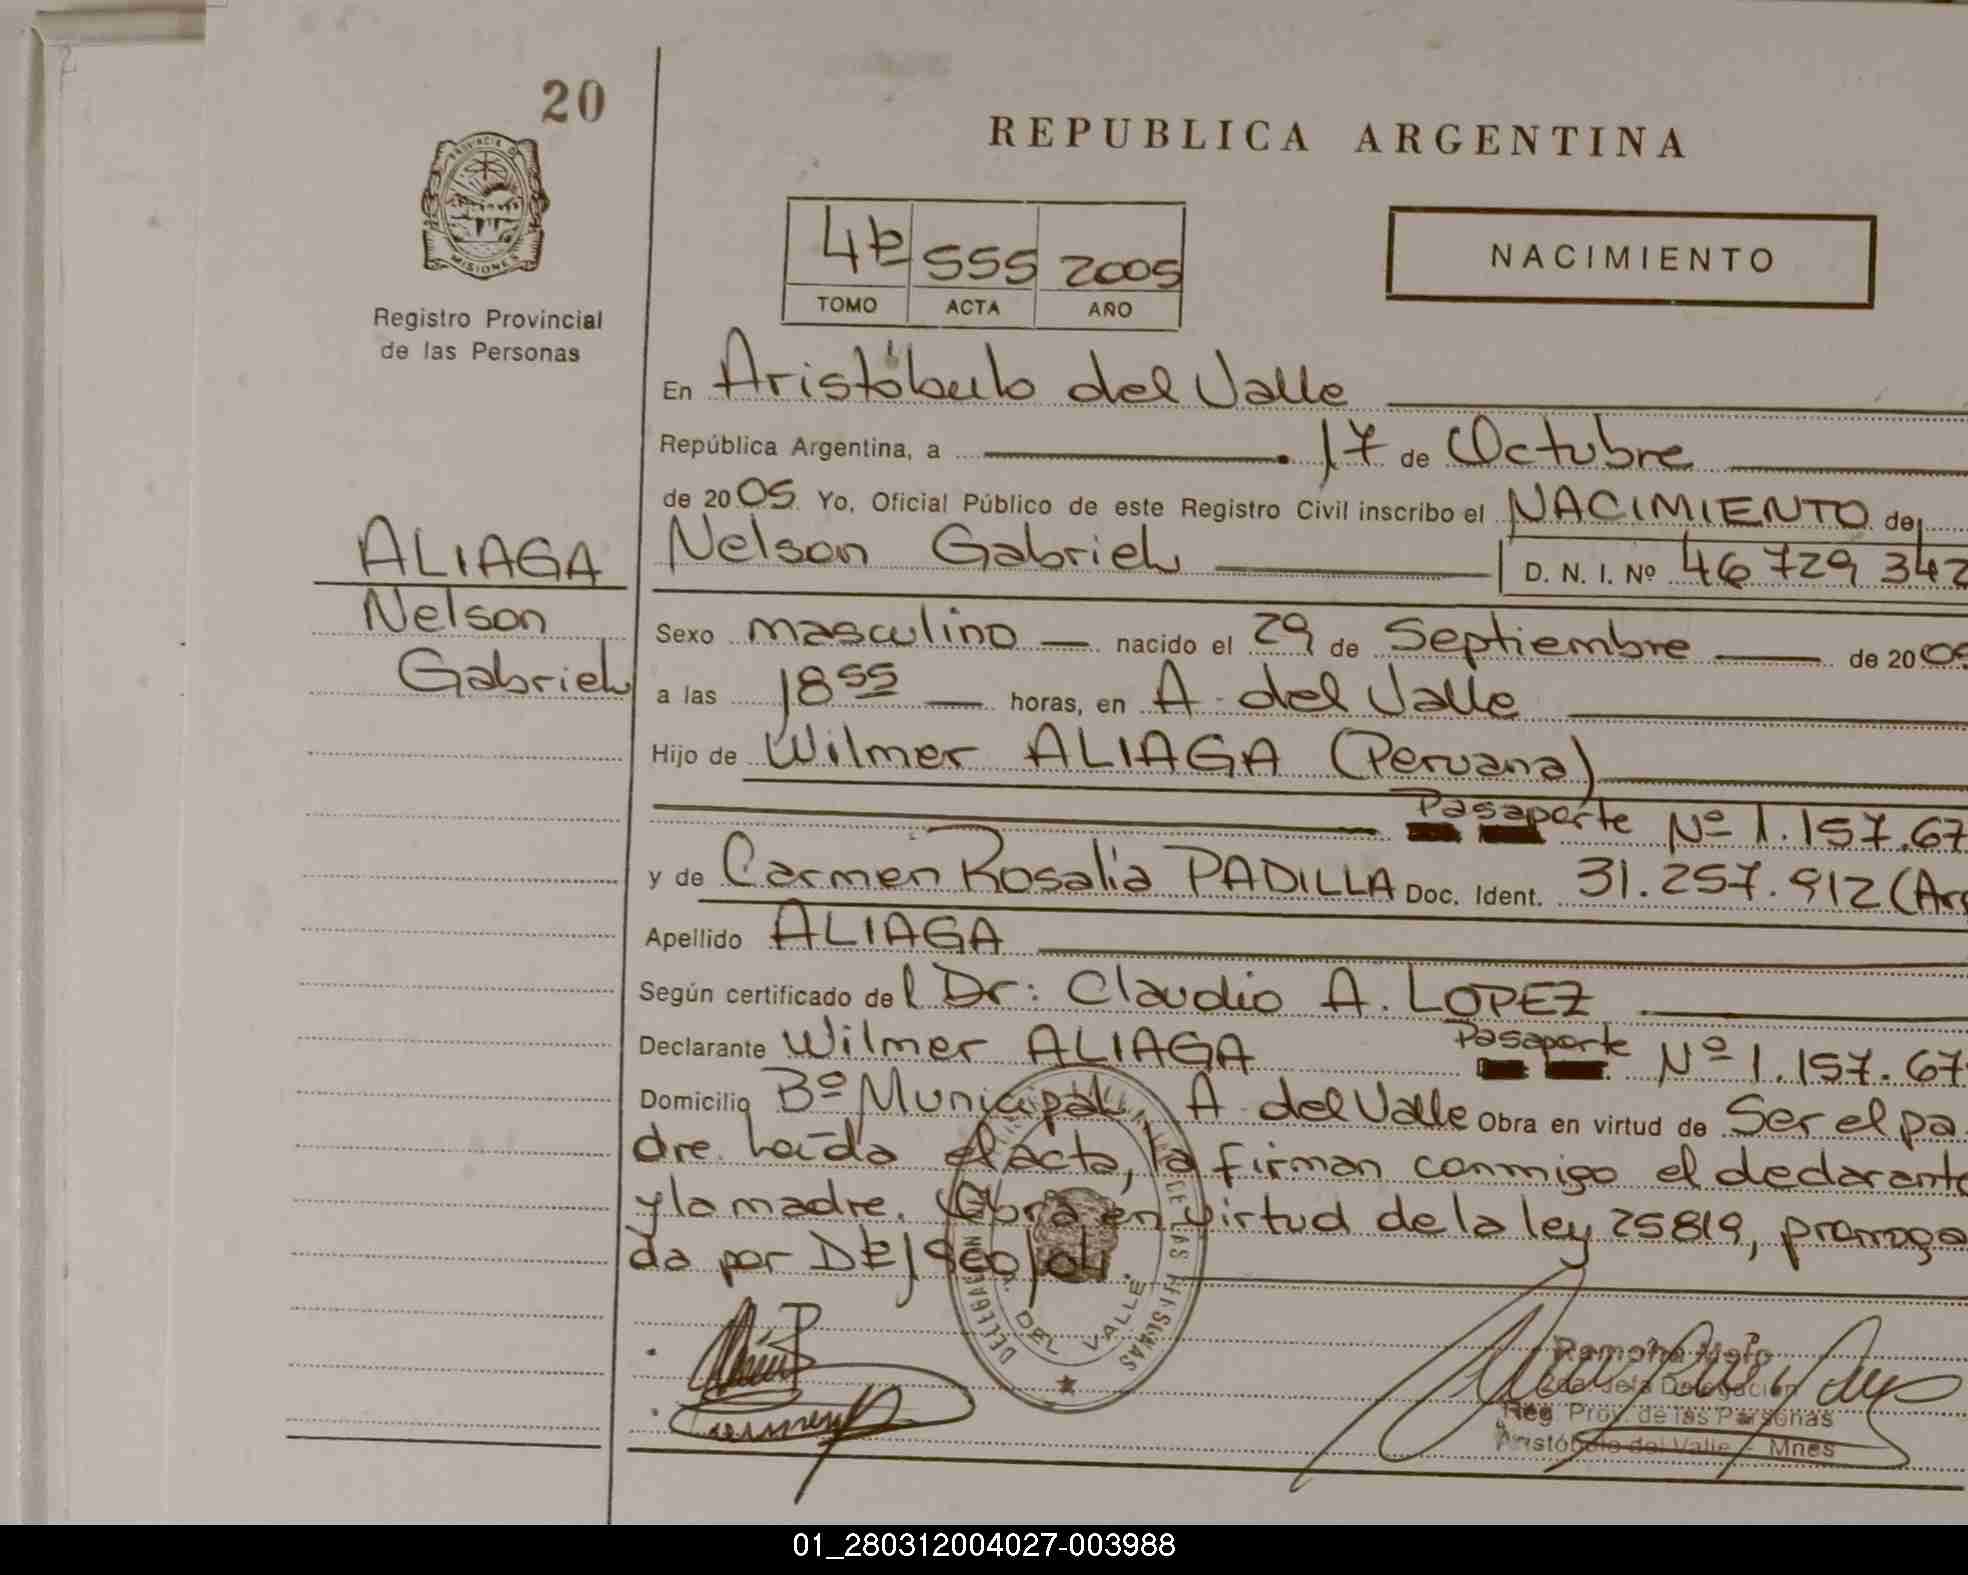 20
REPUBLICA ARGENTINA
PROVINCIA D
MISIONES
Registro Provincial
de las Personas
4º 555 2005
TOMO ACTA AÑO
NACIMIENTO
En Aristóbulo del Valle
República Argentina, a 17 de Octubre
de 2005 Yo, Oficial Público de este Registro Civil inscribo el NACIMIENTO de
ALIAGA
Nelson
Gabriel
Nelson Gabriel D. N. I. Nº 46 729 342
Sexo masculino nacido el 29 de Septiembre de 2005
a las 18 55 horas, en A. del Valle
Hijo de Wilmer ALIAGA (Peruana)
Pasaporte Nº 1.157.67
y de Carmen Rosalia PADILLA Doc. Ident. 31.257.912 (Arg
Apellido ALIAGA
Según certificado del Dr: Claudio A. LOPEZ
Declarante Wilmer ALIAGA Pasaporte Nº 1.157.67
Domicilio Bº Municipal, A. del Valle Obra en virtud de Ser el pa
dre. Leída el acta, la firman conmigo el declarante
y la madre. Obra en virtud de la ley 25819, prorroga
da por
DELEGACION DE LAS PERSONAS
A. DEL VALLE
Ramona Melo
2da. Jefa Delegación
Reg. Prov. de las Personas
Aristóbulo del Valle - Mnes
01_280312004027-003988